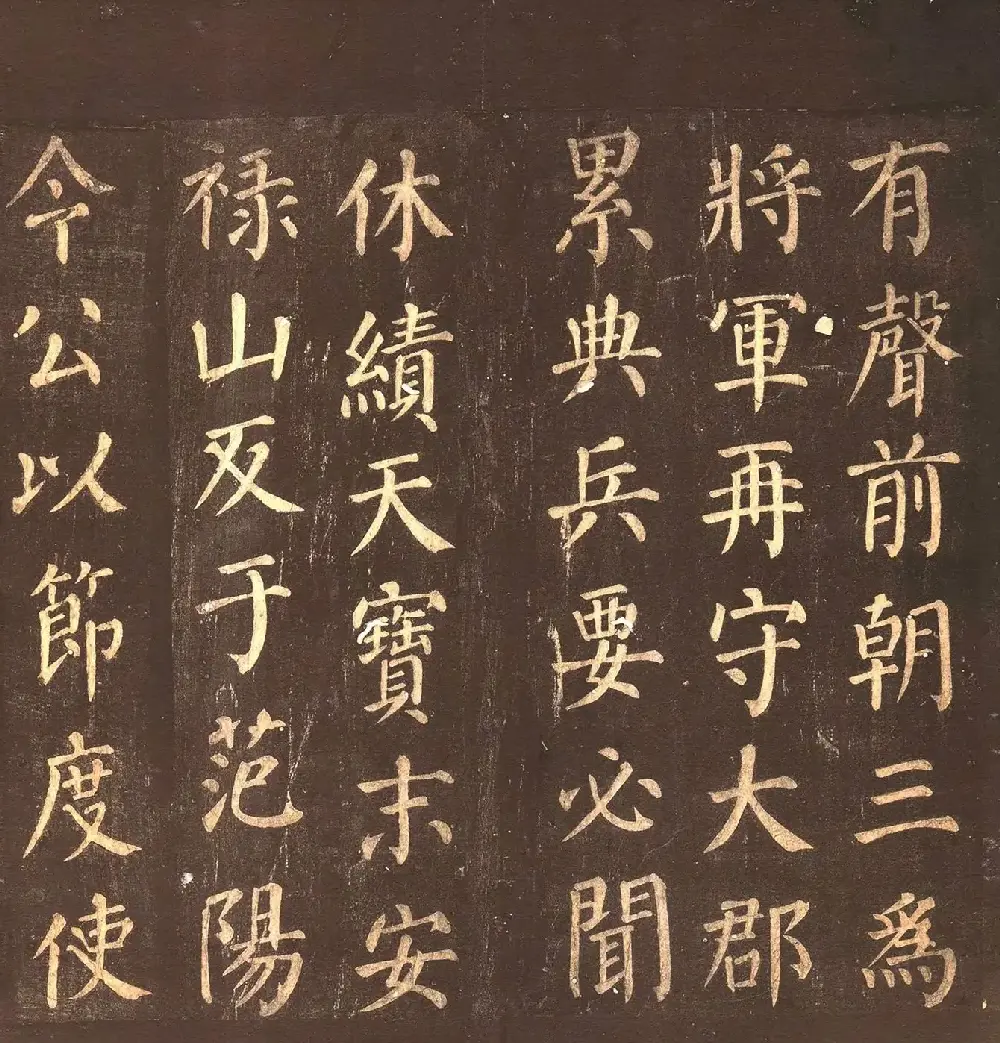 有聲前朝三爲
將軍再守大郡
累典兵要必聞
休績天寶末安
禄山反于范陽
今公以節度使